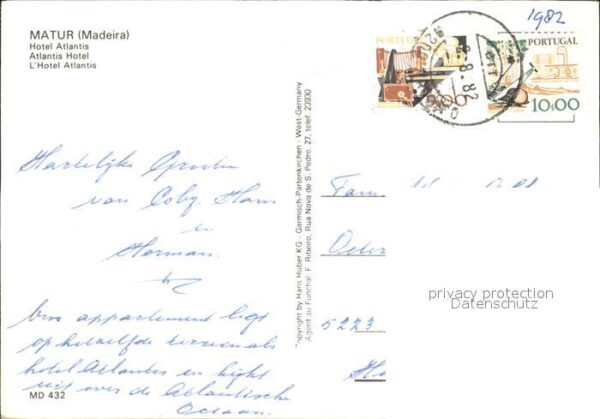 MATUR (Madeira)
Hotel Atlantis
Atlantis Hotel
L'Hotel Atlantis
1982
PORTUGAL
PORTUGAL
10$00
8.82
Hartelijke Groeten
van Coby, Hans
en
Herman.
Ons appartement ligt
op hetzelfde terrein als
hotel Atlantis en kijkt
uit over de Atlantische
Oceaan.
MD 432
Copyright by Hans Huber KG - Garmisch-Partenkirchen - West-Germany
Agent au Funchal: F. Ribeiro, Rua Nova de S. Pedro, 27, telef. 23930
Fam
5223
privacy protection
Datenschutz